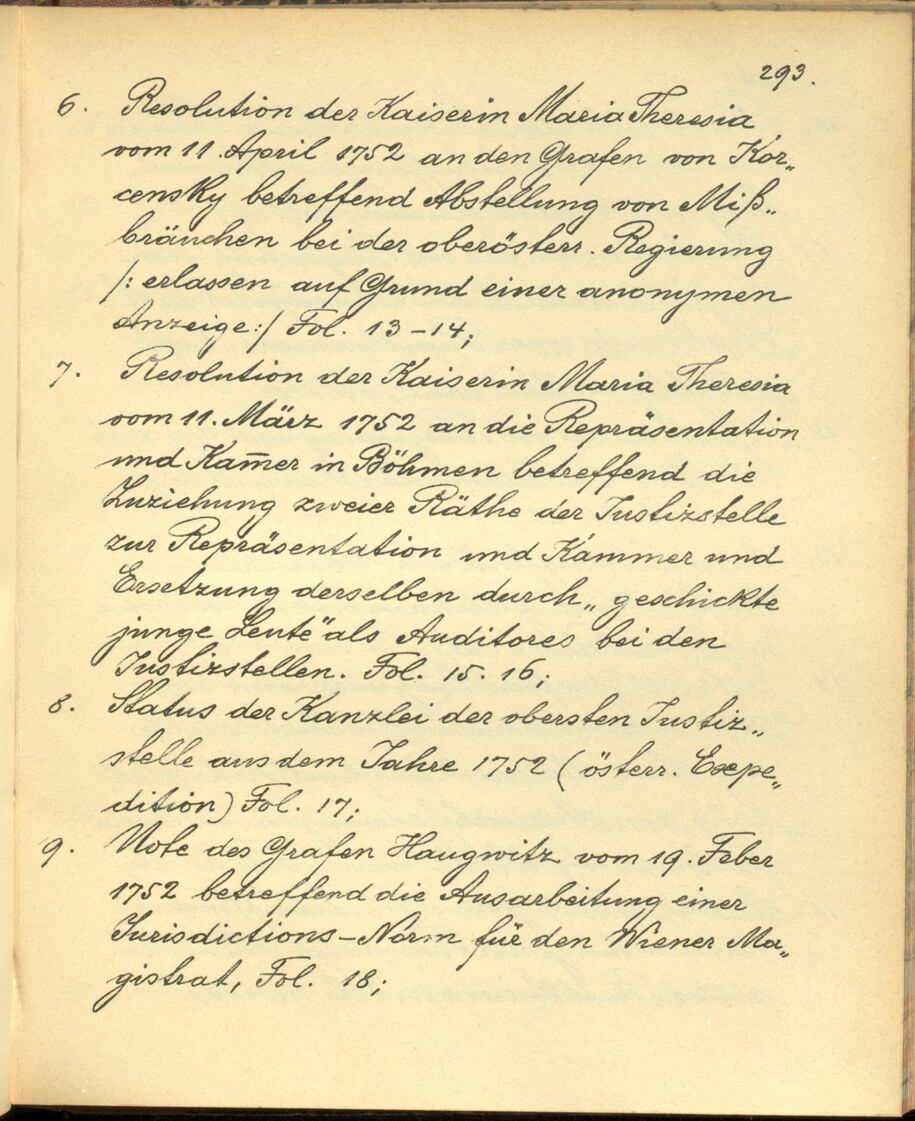 293.
6. Resolution der Kaiserin Maria Theresia
vom 11. April 1752 an den Grafen von Kor„
censky betreffend Abstellung von Miß„
bräuchen bei der oberösterr. Regierung
/: erlassen auf Grund einer anonymen
Anzeige :/ Fol. 13-14;
7. Resolution der Kaiserin Maria Theresia
vom 11. März 1752 an die Repräsentation
und Kam̄er in Böhmen betreffend die
Zuziehung zweier Räthe der Justizstelle
zur Repräsentation und Kammer und
Ersetzung derselben durch „geschickte
junge Leute" als Auditores bei den
Justizstellen. Fol. 15. 16;
8. Status der Kanzlei der obersten Justiz„
stelle aus dem Jahre 1752 (österr. Expe„
dition) Fol. 17;
9. Note des Grafen Haugwitz vom 19. Feber
1752 betreffend die Ausarbeitung einer
Jurisdictions-Norm für den Wiener Ma„
gistrat, Fol. 18;